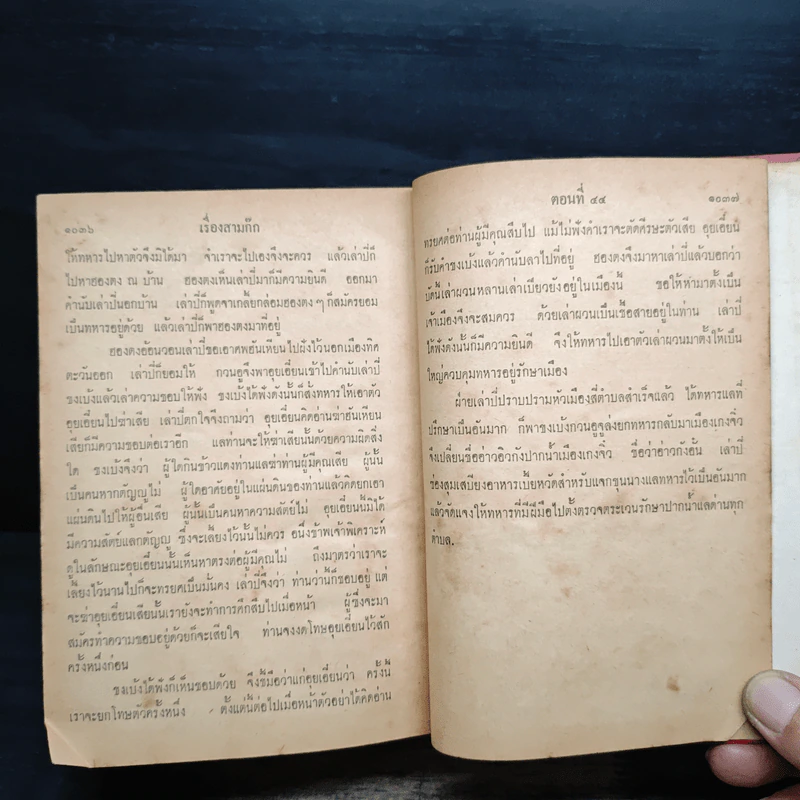 ๑๐๓๖ เรื่องสามก๊ก
ให้ทหารไปหาตัวจึงมิได้มา จำเราจะไปเองจึงจะควร แล้วเล่าปี่ก็
ไปหาฮองตง ณ บ้าน ฮองตงเห็นเล่าปี่มาก็มีความยินดี ออกมา
คำนับเล่าปี่นอกบ้าน เล่าปี่ก็พูดจาเกลี้ยกล่อมฮองตง ๆ ก็สมัครยอม
เป็นทหารอยู่ด้วย แล้วเล่าปี่ก็พาฮองตงมาที่อยู่
ฮองตงอ้อนวอนเล่าปี่ขอเอาศพฮันเหียนไปฝังไว้นอกเมืองทิศ
ตะวันออก เล่าปี่ก็ยอมให้ กวนอูจึงพาอุยเอี๋ยนเข้าไปคำนับเล่าปี่
ขงเบ้งแล้วเล่าความชอบให้ฟัง ขงเบ้งได้ฟังดังนั้นก็สั่งทหารให้เอาตัว
อุยเอี๋ยนไปฆ่าเสีย เล่าปี่ตกใจจึงถามว่า อุยเอี๋ยนคิดอ่านฆ่าฮันเหียน
เสียก็มีความชอบต่อเราอีก แลท่านจะให้ฆ่าเสียนั้นด้วยความผิดสิ่ง
ใด ขงเบ้งจึงว่า ผู้ใดกินข้าวแดงท่านแลฆ่าท่านผู้มีคุณเสีย ผู้นั้น
เป็นคนหากตัญญูไม่ ผู้ใดอาศัยอยู่ในแผ่นดินของท่านแล้วคิดยกเอา
แผ่นดินไปให้ผู้อื่นเสีย ผู้นั้นเป็นคนหาความสัตย์ไม่ อุยเอี๋ยนนี้มิได้
มีความสัตย์แลกตัญญู ซึ่งจะเลี้ยงไว้นั้นไม่ควร อนึ่งข้าพเจ้าพิเคราะห์
ดูในลักษณะอุยเอี๋ยนนั้นเห็นหาตรงต่อผู้มีคุณไม่ ถึงมาตรว่าเราจะ
เลี้ยงไว้นานไปก็จะทรยศเป็นมั่นคง เล่าปี่จึงว่า ท่านว่านี้ก็ชอบอยู่ แต่
จะฆ่าอุยเอี๋ยนเสียนั้นเรายังจะทำการศึกสืบไปเมื่อหน้า ผู้ซึ่งจะมา
สมัครทำความชอบอยู่ด้วยก็จะเสียใจ ท่านจงงดโทษอุยเอี๋ยนไว้สัก
ครั้งหนึ่งก่อน
ขงเบ้งได้ฟังก็เห็นชอบด้วย จึงชี้มือว่าแก่อุยเอี๋ยนว่า ครั้งนี้
เราจะยกโทษตัวครั้งหนึ่ง ตั้งแต่นี้ต่อไปเมื่อหน้าตัวอย่าได้คิดอ่าน
ตอนที่ ๔๔ ๑๐๓๗
ทรยศต่อท่านผู้มีคุณสืบไป แม้ไม่ฟังคำเราจะตัดศีรษะตัวเสีย อุยเอี๋ยน
ก็รับคำขงเบ้งแล้วคำนับลาไปที่อยู่ ฮองตงจึงมาหาเล่าปี่แล้วบอกว่า
บัดนี้เล่าผวนหลานเล่าเปียวยังอยู่ในเมืองนี้ ขอให้หามาตั้งเป็น
เจ้าเมืองจึงจะสมควร ด้วยเล่าผวนเป็นเชื้อสายอยู่ในท่าน เล่าปี่
ได้ฟังดังนั้นก็มีความยินดี จึงให้ทหารไปเอาตัวเล่าผวนมาตั้งให้เป็น
ใหญ่ควบคุมทหารอยู่รักษาเมือง
ฝ่ายเล่าปี่ปราบปรามหัวเมืองสี่ตำบลสำเร็จแล้ว ได้ทหารแลที่
ปรึกษาเป็นอันมาก ก็พาขงเบ้งกวนอูจูล่งยกทหารกลับมาเมืองเกงจิ๋ว
จึงเปลี่ยนชื่ออ่าวอิวกังปากน้ำเมืองเกงจิ๋ว ชื่อว่าอ่าวกังอั้น เล่าปี่
ซ่องสุมเสบียงอาหารเบี้ยหวัดสำหรับแจกขุนนางแลทหารไว้เป็นอันมาก
แล้วจัดแจงให้ทหารที่มีฝีมือไปตั้งตรวจตระเวนรักษาปากน้ำแลด่านทุก
ตำบล.